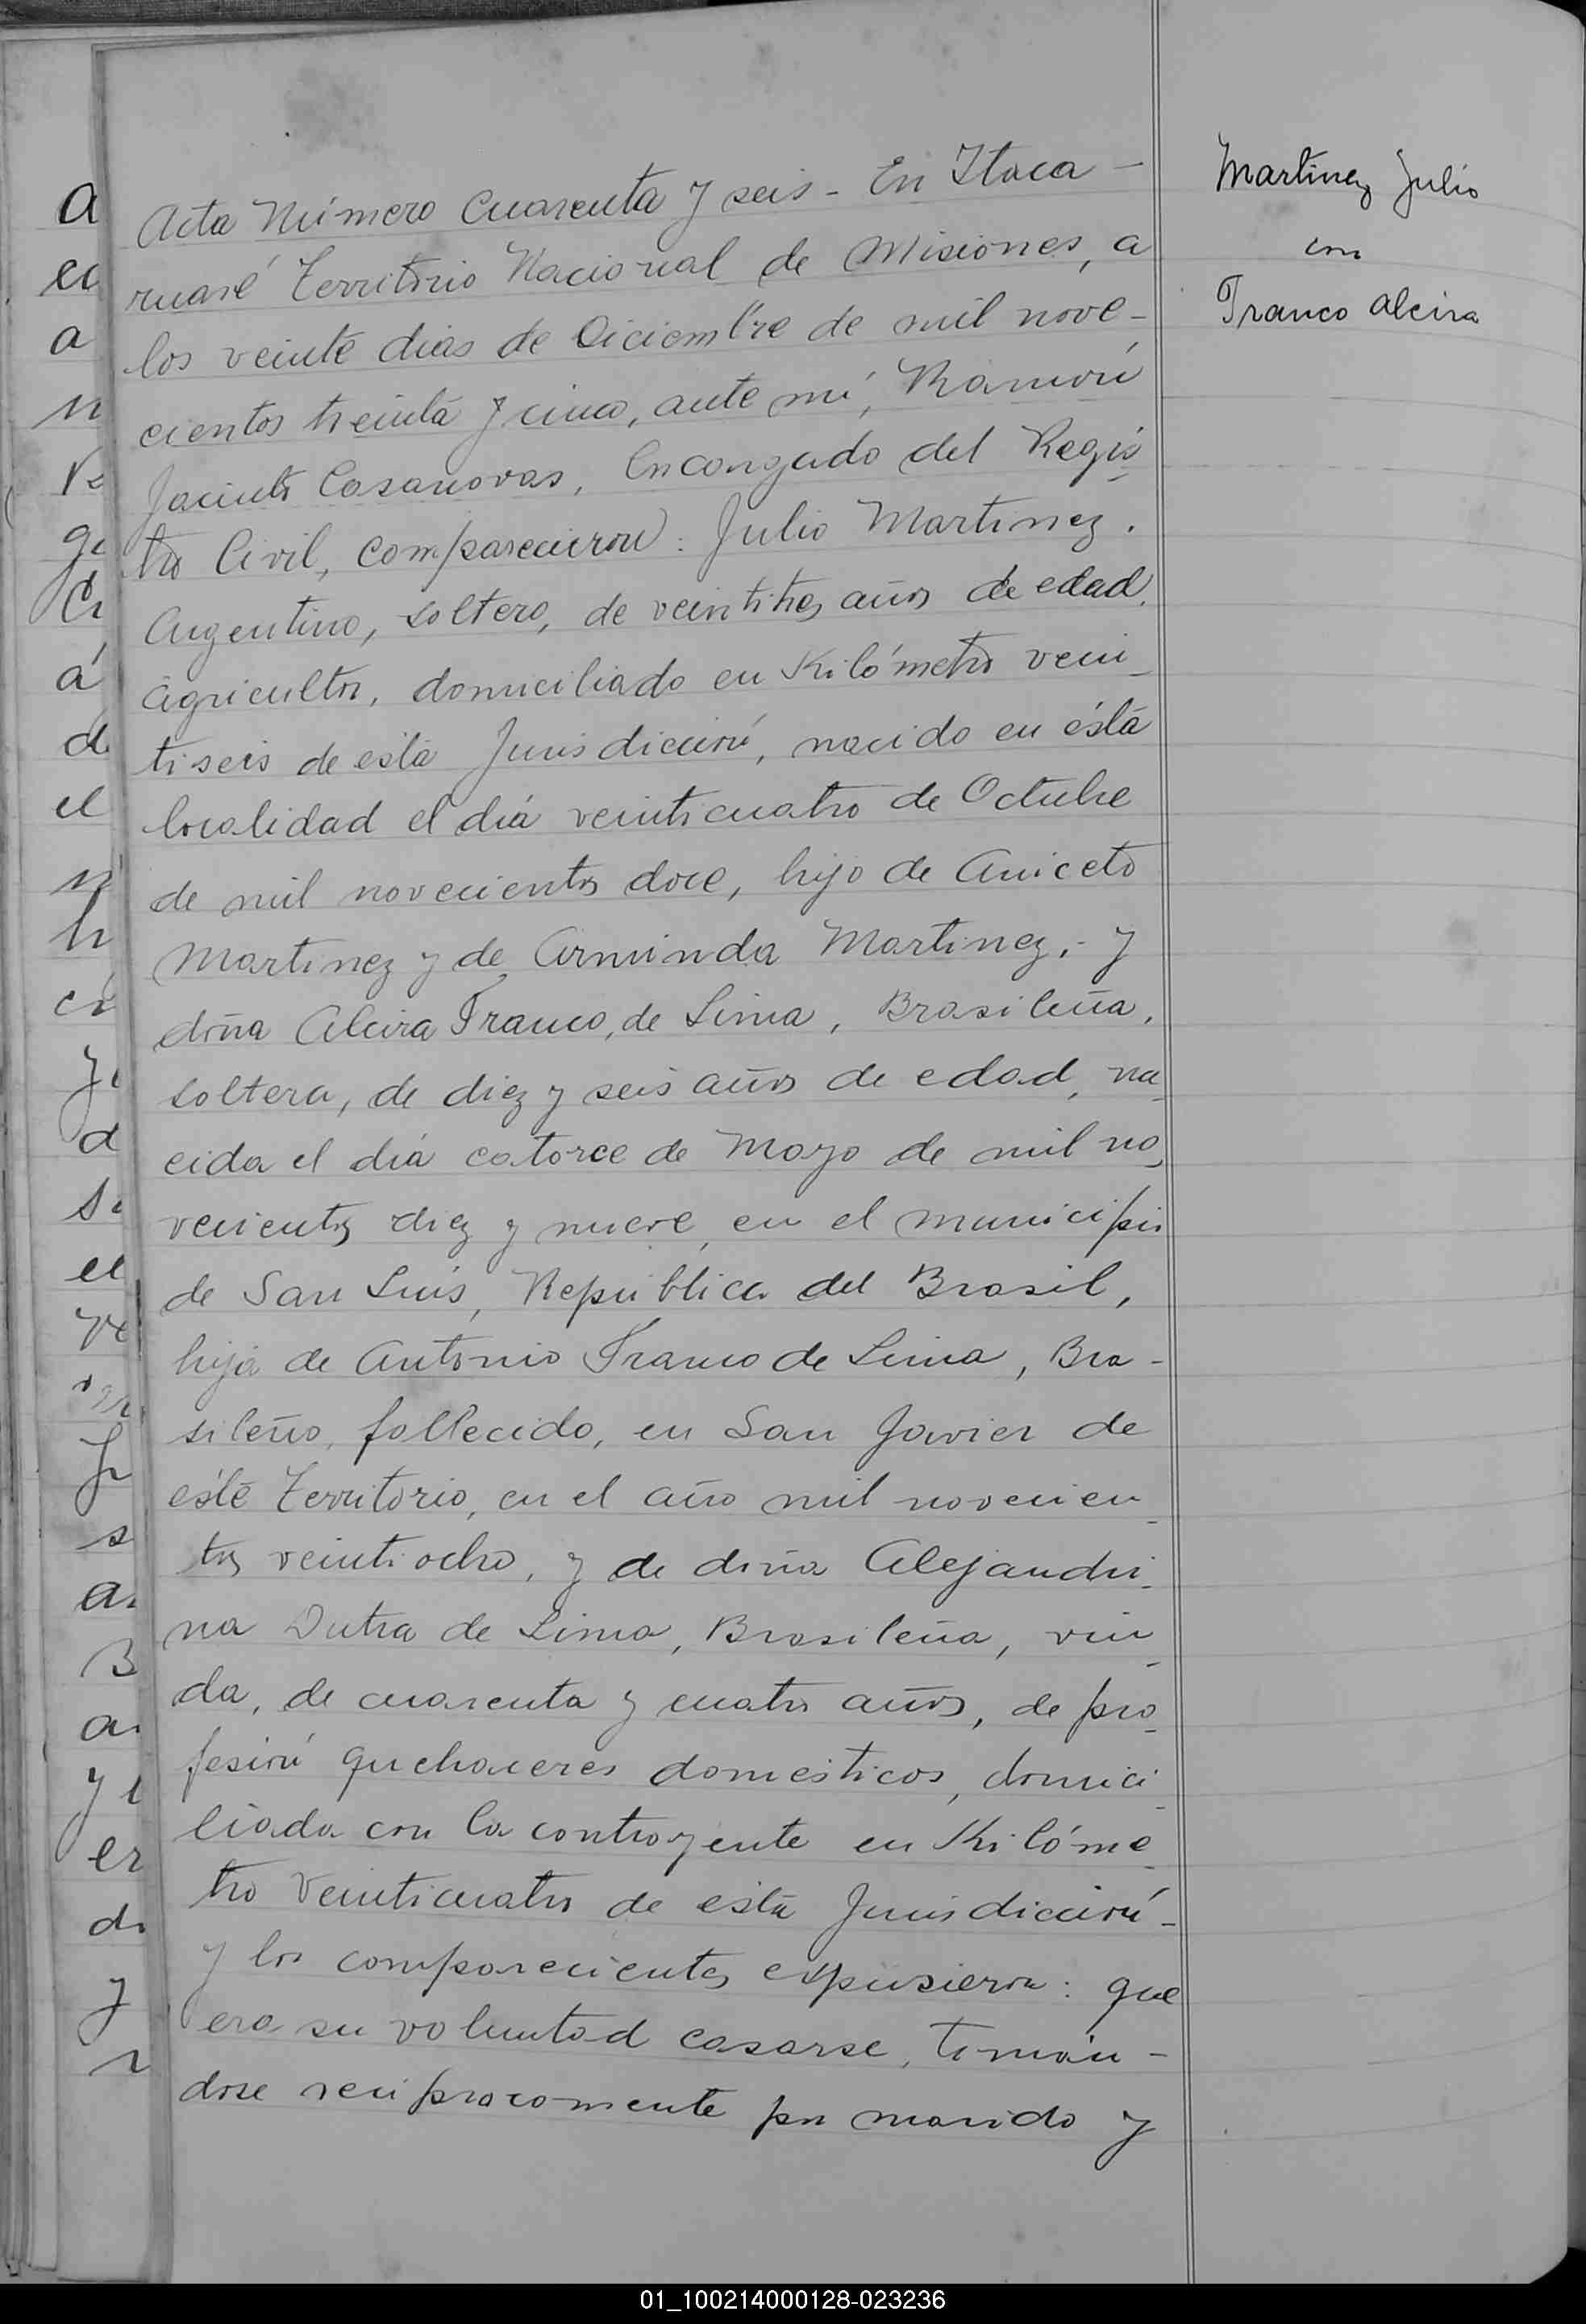 Acta Número Cuarenta y seis - En Itaca-
ruaré Territorio Nacional de Misiones, a
los veinte dias de Diciembre de mil nove-
cientos treinta y cinco, ante mí, Ramón
Jacinto Casanovas, Encargado del Regis
tro Civil, comparecieron: Julio Martinez.
Argentino, soltero, de veintitres años de edad,
agricultor, domiciliado en Kilómetro vein-
tiseis de ésta Jurisdicción, nacido en ésta
localidad el diá veinticuatro de Octubre
de mil novecientos doce, hijo de Aniceto
Martinez y de Arminda Martinez,- y
doña Alcira Franco, de Lima, Brasileña,
soltera, de diez y seis años de edad, na-
cida el diá catorce de Mayo de mil no-
vecientos diez y nueve, en el municipio
de San Luis, República del Brasil,
hija de Antonio Franco de Lima, Bra-
sileño, fallecido, en San Javier de
éste Territorio, en el año mil novecien-
tos veintiocho, y de doña Alejandri-
na Dutra de Lima, Brasileña, viu-
da, de cuarenta y cuatro años, de pro-
fesión quehaceres domésticos, domici-
liada con la contrayente en Kilóme-
tro Veinticuatro de ésta Jurisdicción-
y los comparecientes expusieron: que
era su voluntad casarse, tomán-
dose reciprocomente por marido y
Martinez Julio
con
Franco Alcira
01_100214000128-023236